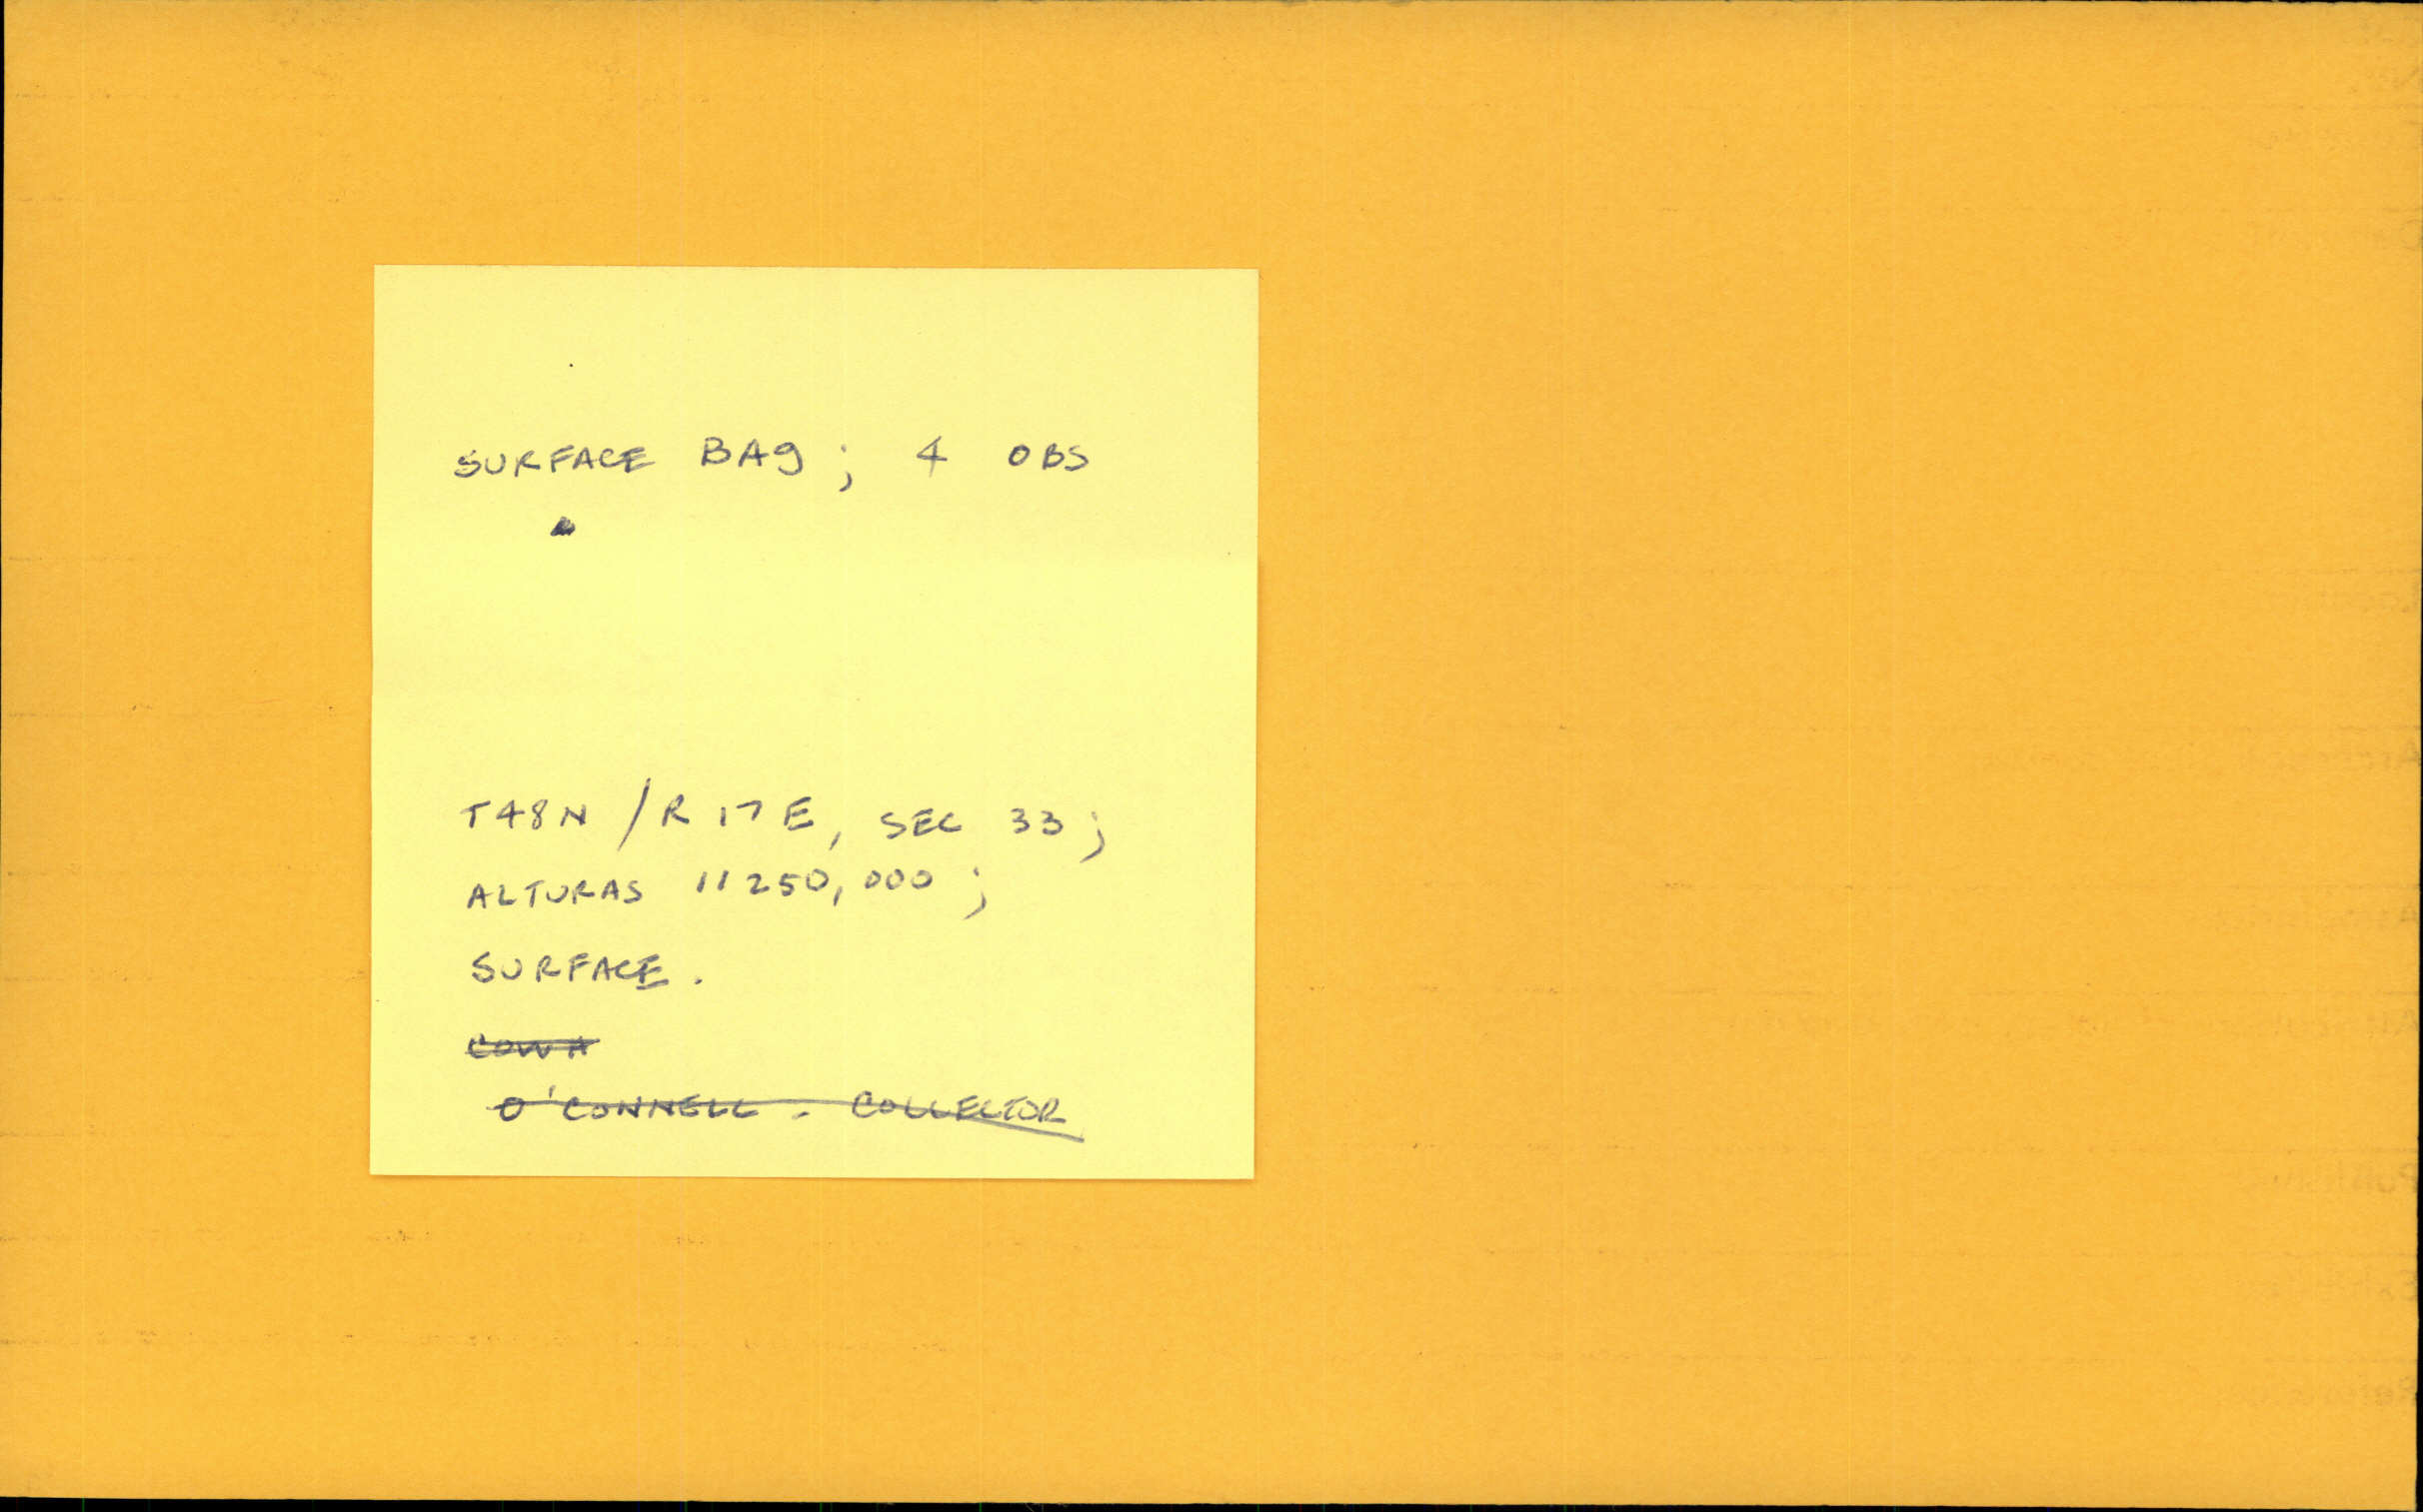 SURFACE BAG; 4 OBS
T48N / R 17 E, SEC 33;
ALTURAS 11250,000;
SURFACE.
O'CONNELL - COLLECTOR